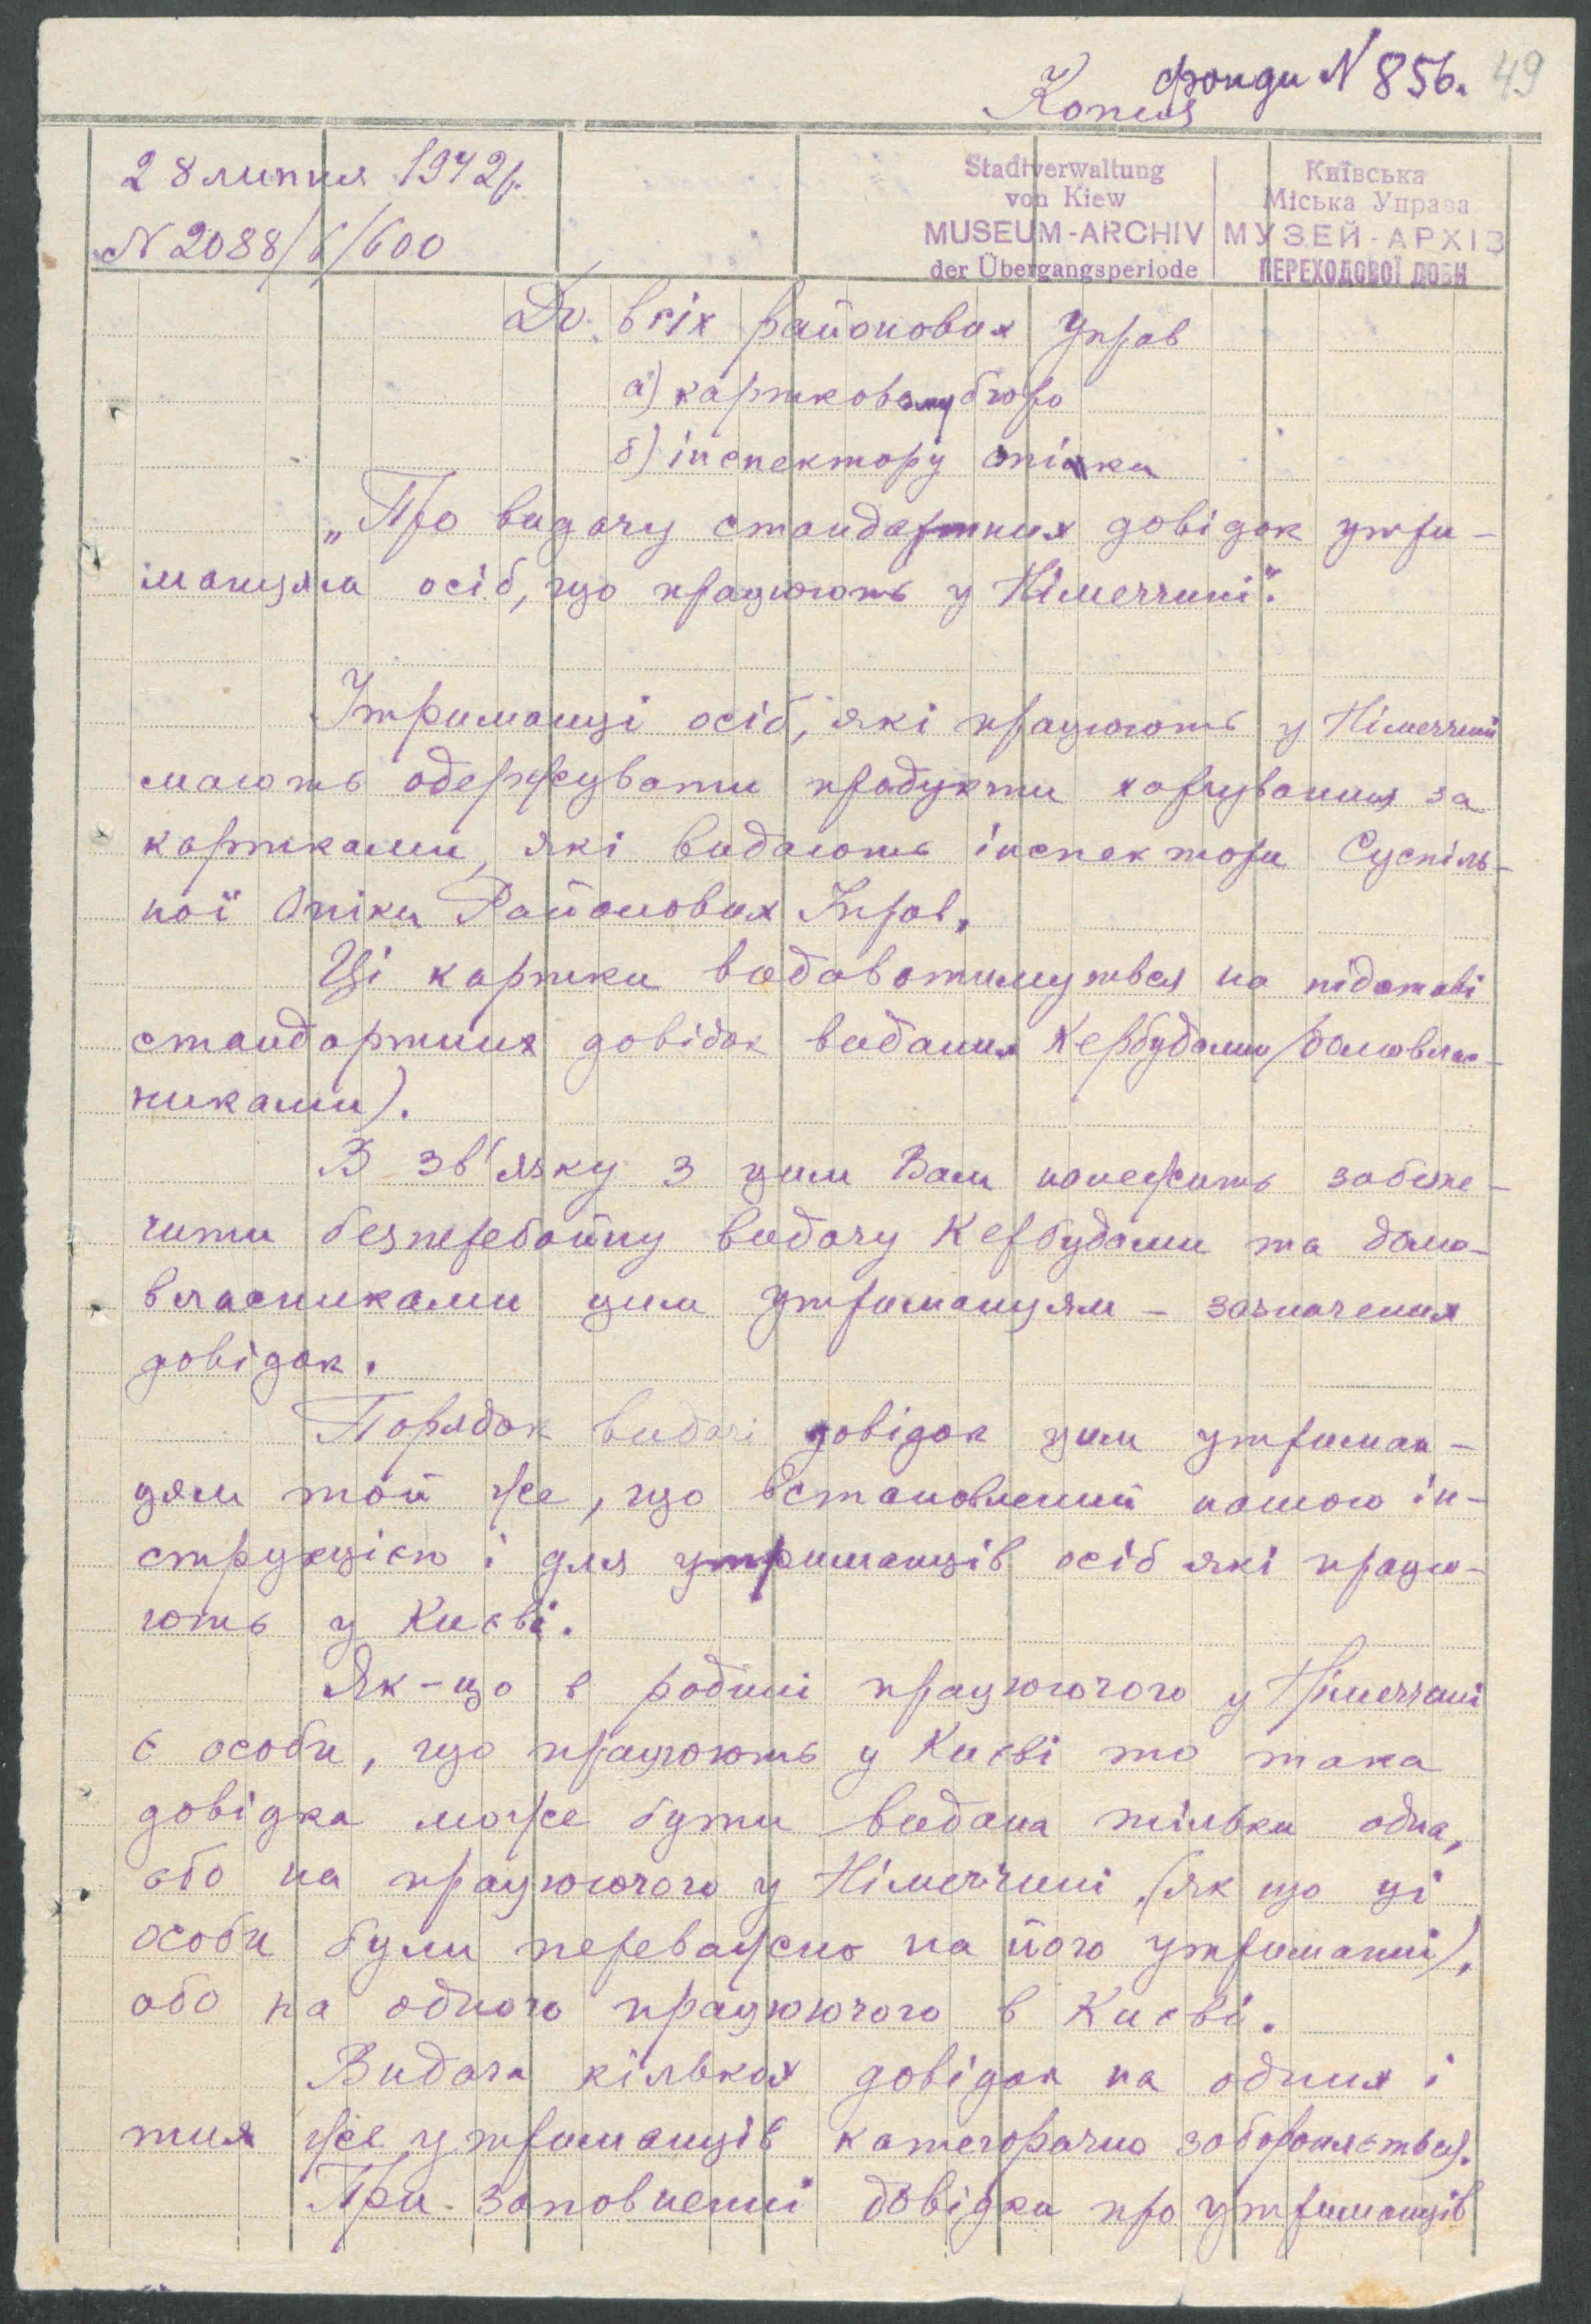 фонди N 856. 49
Копия
28 липня 1942р.
N 2088/6/600
Stadtverwaltung
von Kiew
MUSEUM-ARCHIV
der Übergangsperiode
Київська
Міська Управа
МУЗЕЙ-АРХІВ
ПЕРЕХОДОВОЇ ДОБИ
До всіх районових Управ
а) картковому бюро
б) інспектору опіки
„Про видачу стандартних довідок утри-
манцям осіб, що працюють у Німеччині".
Утриманці осіб, які працюють у Німеччині
мають одержувати продукти харчування за
картками, які видають інспектори Суспіль-
ної Опіки Районових Управ.
Ці картки видаватимуться на підставі
стандартних довідок виданих Кербудами (домовлас-
никами).
В зв'язку з цим Вам належить забезпе-
чити безперебойну видачу Кербудами та домо-
власниками цим утриманцям - зазначених
довідок.
Порядок видачі довідок цим утриман-
цям той же, що встановлений нашою ін-
струкцією і для утриманців осіб які працю-
ють у Києві.
Як-що в родині працюючого у Німеччині
є особи, що працюють у Києві то така
довідка може бути видана тільки одна,
або на працюючого у Німеччині (як що ці
особи були переважно на його утриманні),
або на одного працюючого в Києві.
Видача кількох довідок на одних і
тих же утриманців категорично забороняється.
При заповненні довідки про утриманців